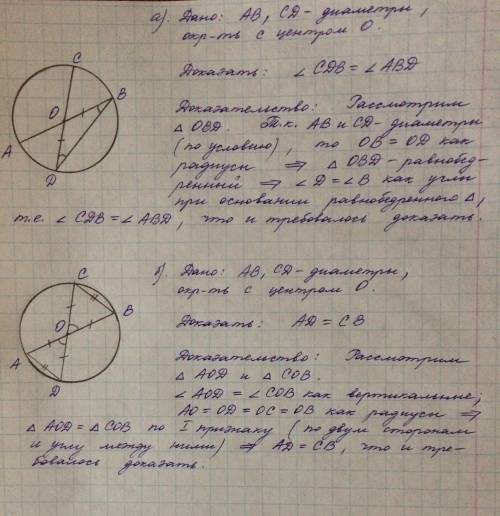 а). Дано: AB, CD - диаметры,
окр-ть с центром O.
Доказать: ∠CDB = ∠ABD
Доказательство: Рассмотрим
△OBD. Т.к. AB и CD - диаметры
(по условию), то OB = OD как
радиусы ⇒ △OBD - равнобед-
ренный ⇒ ∠D = ∠B как углы
при основании равнобедренного △,
т.е. ∠CDB = ∠ABD, что и требовалось доказать.
C
B
O
A
D
б). Дано: AB, CD - диаметры,
окр-ть с центром O.
Доказать: AD = CB
Доказательство: Рассмотрим
△AOD и △COB.
∠AOD = ∠COB как вертикальные,
AO = OD = OC = OB как радиусы ⇒
△AOD = △COB по I признаку (по двум сторонам
и углу между ними) ⇒ AD = CB, что и тре-
бовалось доказать.
C
B
O
A
D